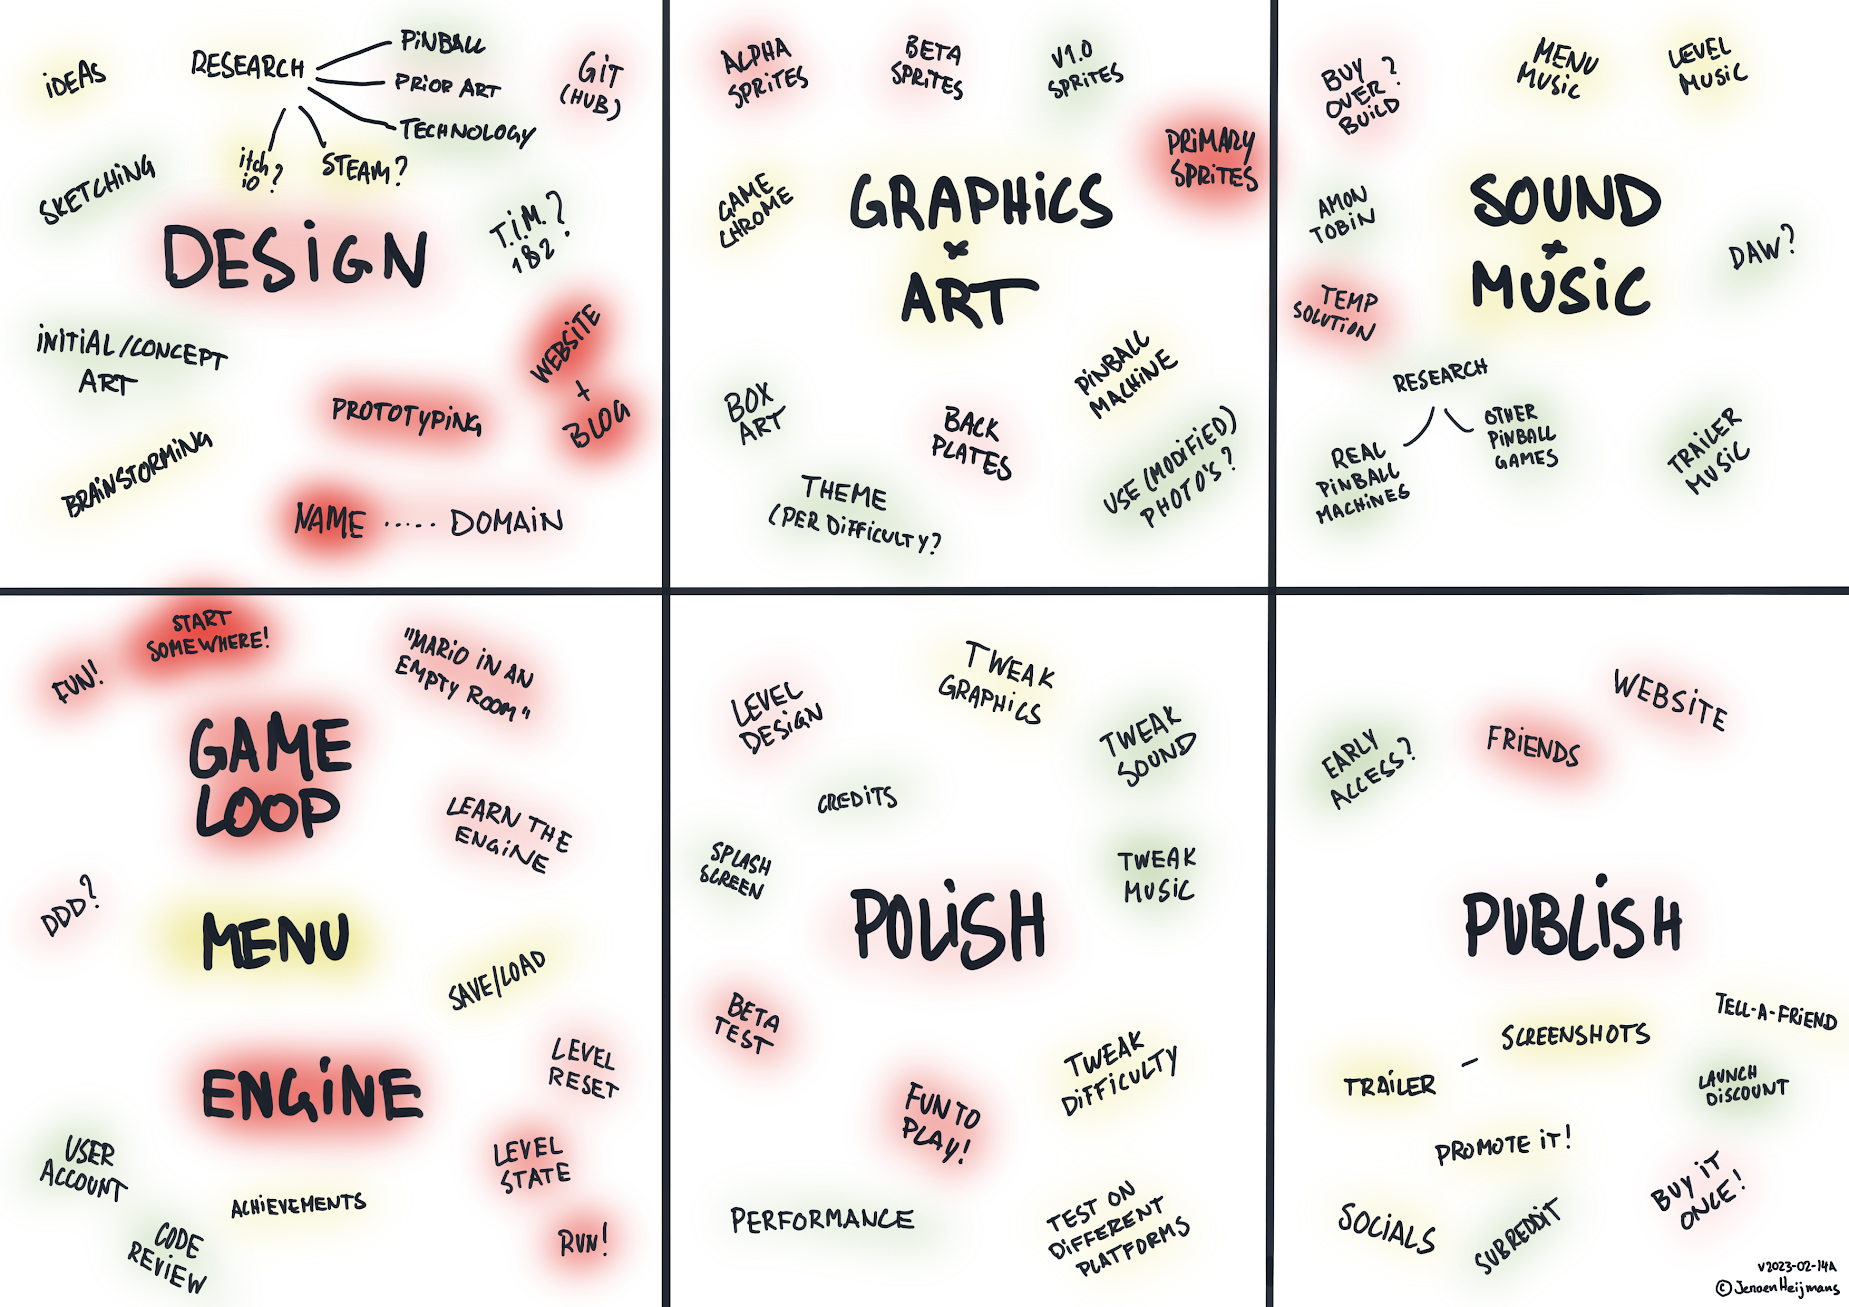 iDEAS
RESEARCH
PiNBALL
PRiOR ART
TECHNOLOGY
itch
io?
STEAM?
GiT
(HUB)
SKETCHiNG
T.i.M.?
1&2
DESiGN
iNiTiAL/CONCEPT
ART
WEBSiTE
+
BLOG
PROTOTYPiNG
BRAiNSTORMiNG
NAME ..... DOMAiN
ALPHA
SPRiTES
BETA
SPRiTES
V1.0
SPRiTES
PRiMARY
SPRiTES
GAME
CHROME
GRAPHiCS
+
ART
PiNBALL
MACHiNE
BOX
ART
BACK
PLATES
USE (MODiFiED)
PHOTO'S?
THEME
(PER DiFFiCULTY?
BUY ?
OVER
BUiLD
MENU
MUSiC
LEVEL
MUSiC
AMON
TOBiN
SOUND
+
MUSiC
DAW?
TEMP
SOLUTiON
RESEARCH
REAL
PiNBALL
MACHiNES
OTHER
PiNBALL
GAMES
TRAiLER
MUSiC
START
SOMEWHERE!
FUN!
"MARiO iN AN
EMPTY ROOM"
GAME
LOOP
LEARN THE
ENGiNE
DDD?
MENU
SAVE/LOAD
ENGiNE
LEVEL
RESET
LEVEL
STATE
USER
ACCOUNT
ACHiEVEMENTS
CODE
REViEW
RUN!
LEVEL
DESiGN
TWEAK
GRAPHiCS
TWEAK
SOUND
CREDiTS
SPLASH
SCREEN
TWEAK
MUSiC
POLiSH
BETA
TEST
FUN TO
PLAY!
TWEAK
DiFFiCULTY
PERFORMANCE
TEST ON
DiFFERENT
PLATFORMS
EARLY
ACCESS?
FRiENDS
WEBSiTE
PUBLiSH
TELL-A-FRiEND
SCREENSHOTS
TRAiLER
LAUNCH
DiSCOUNT
PROMOTE iT!
BUY iT
ONCE!
SOCiALS
SUBREDDiT
V2023-02-14A
© Jeroen Heijmans